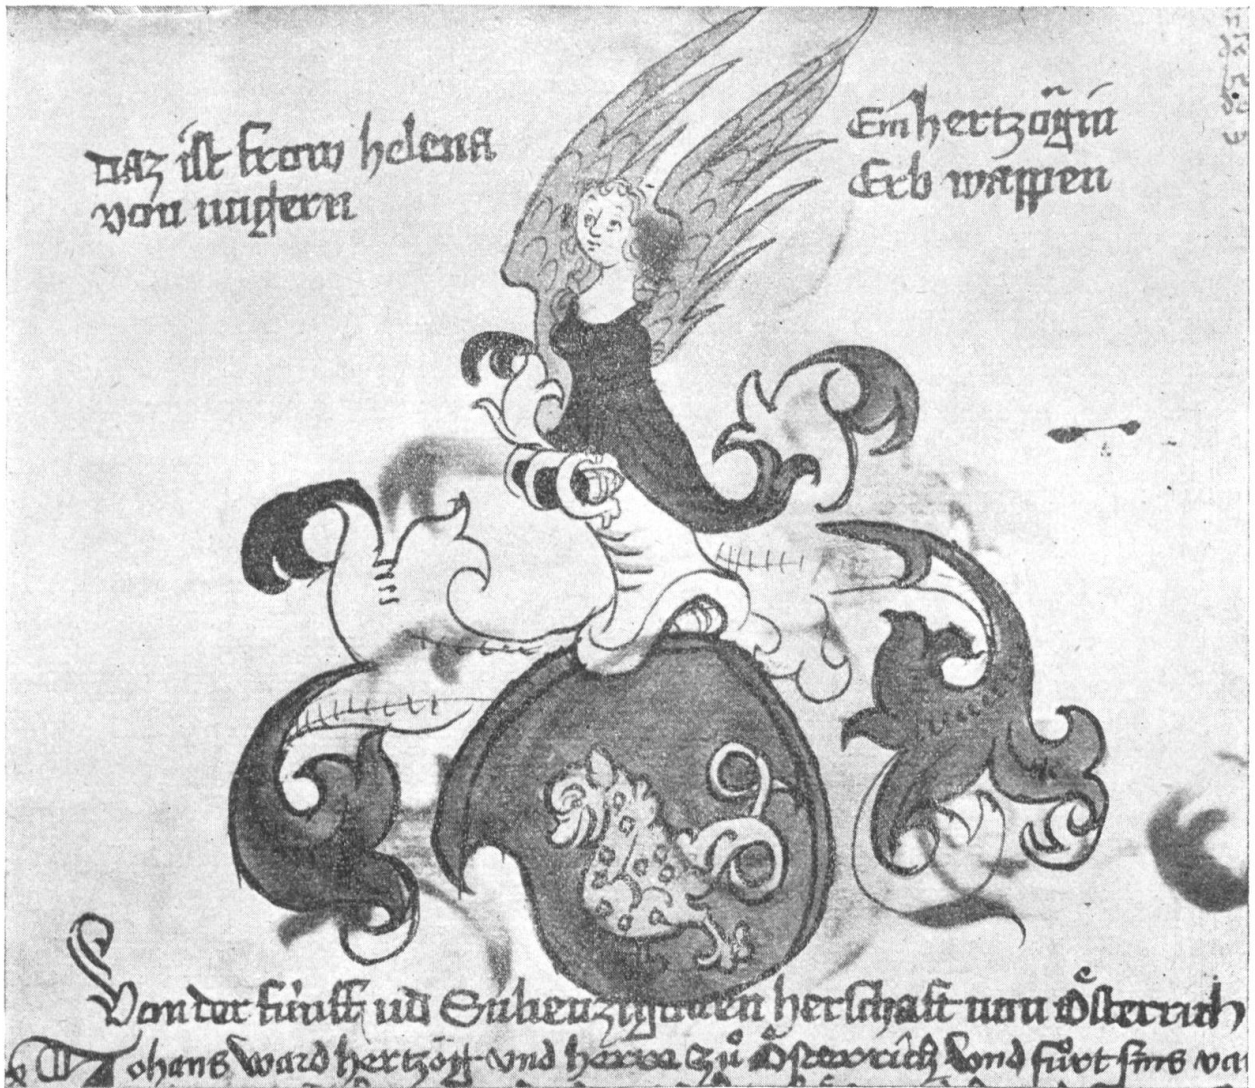 Daz ist frow helena
von ungern
Ein hertzögin
Erb wappen
Von der fünfft und Subenzigosten herschaft von Österrich
Johans ward hertzög und herre zů Österrich vnd fůrt sins va